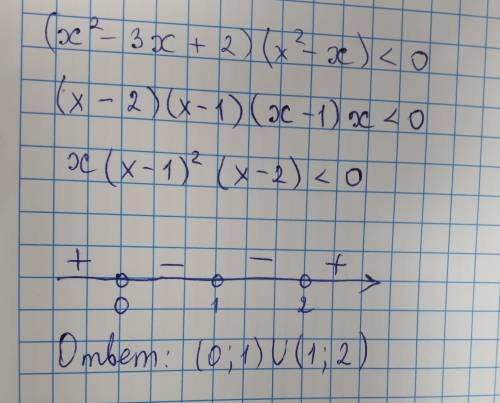 (x² - 3x + 2)(x² - x) < 0
(x - 2)(x - 1)(x - 1)x < 0
x(x - 1)²(x - 2) < 0
+ - - +
0 1 2
Ответ: (0; 1) ∪ (1; 2)